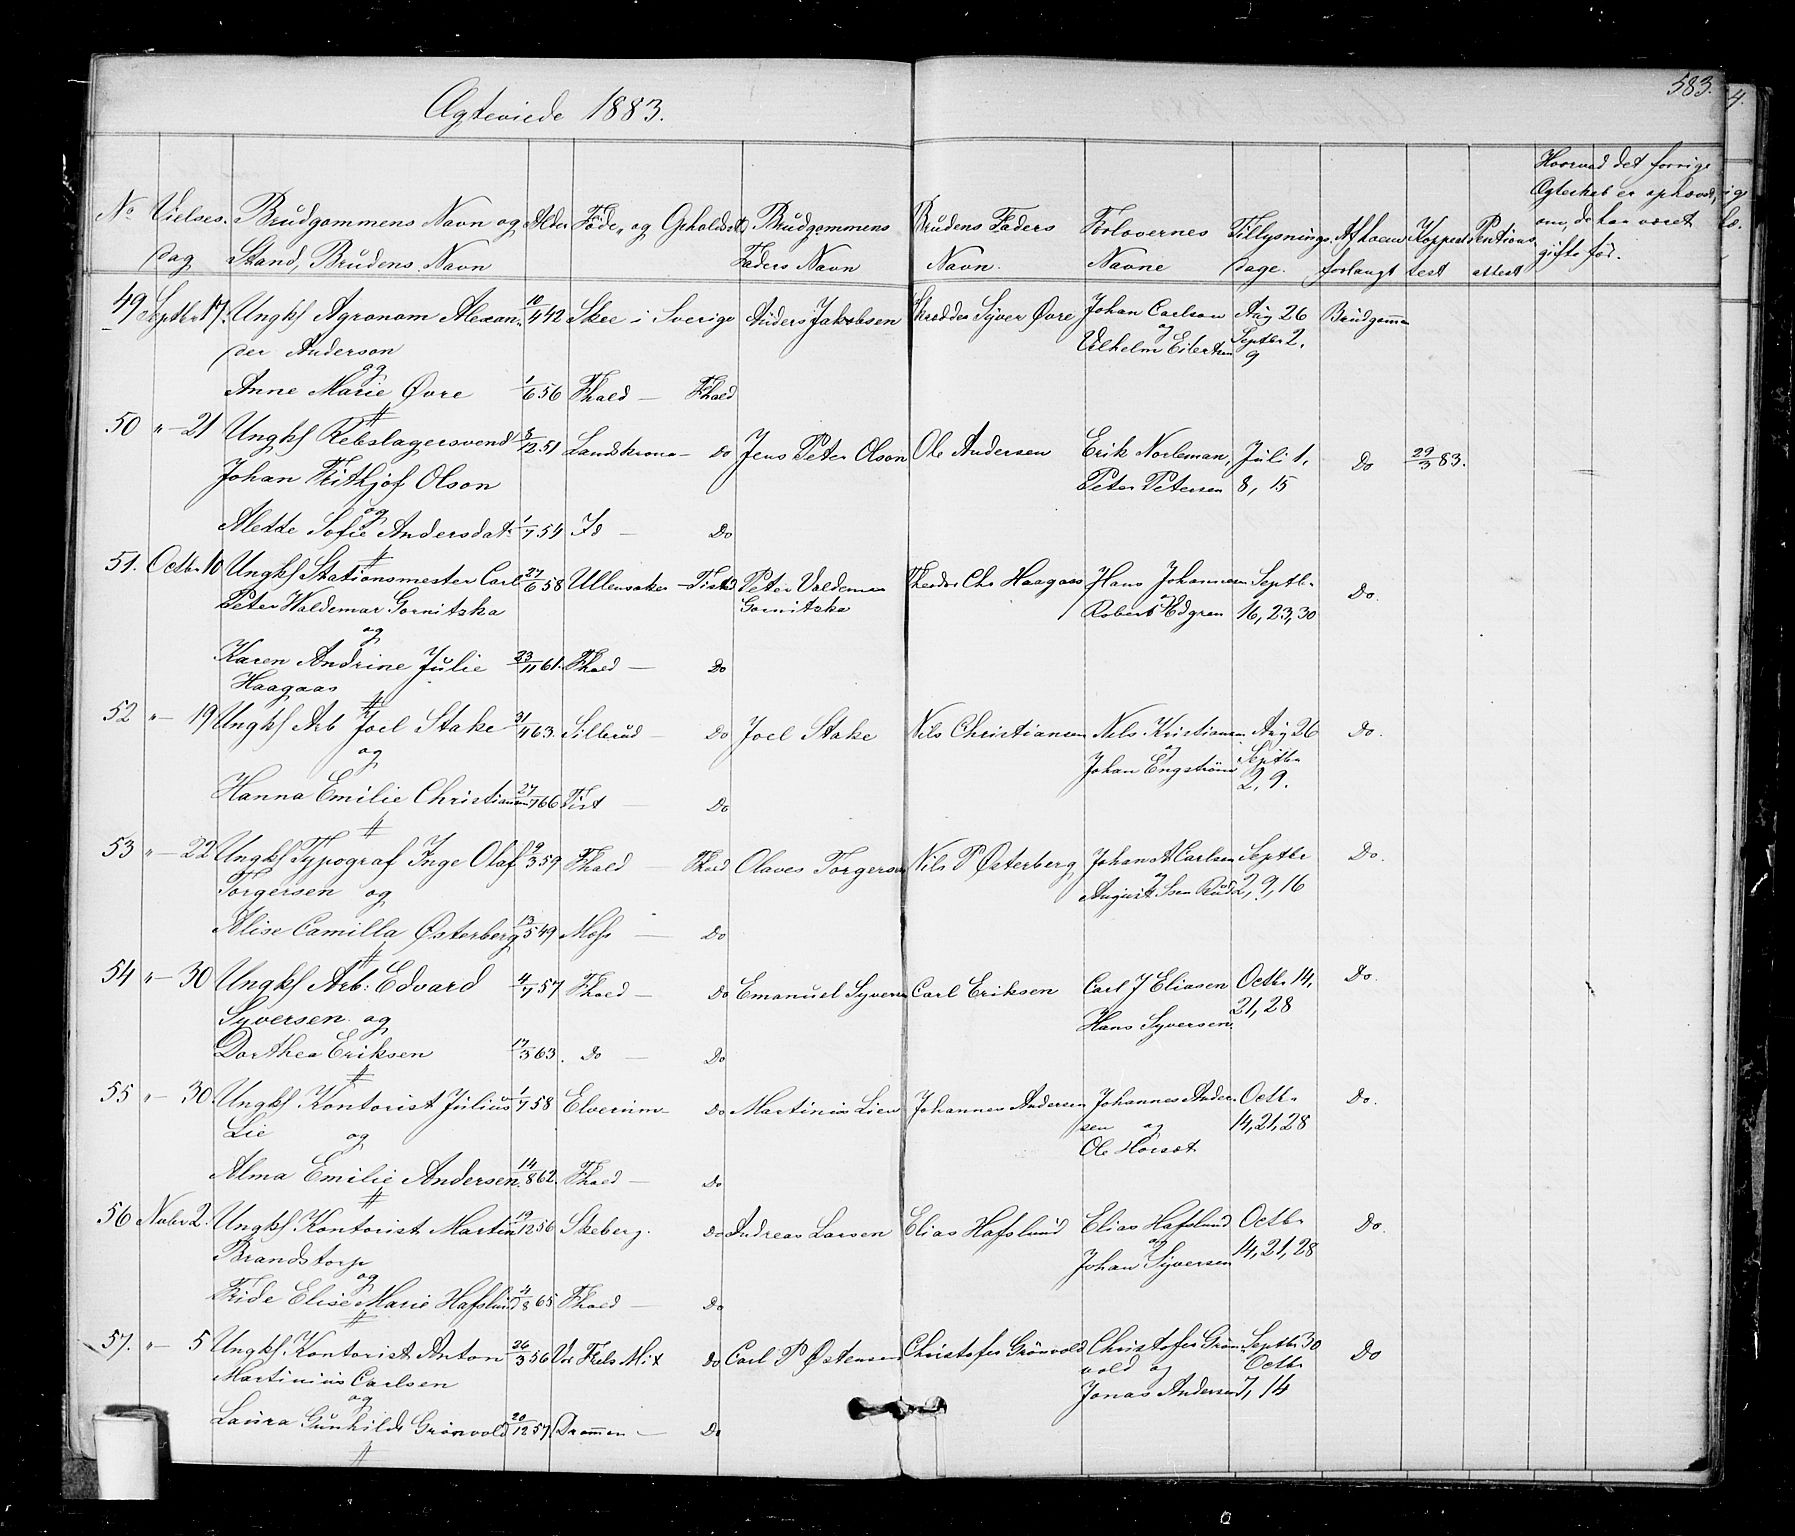 Ægteviede 1883.
583.
4.
No Vielses- dag
Brudgommens Navn og Stand, Brudens Navn
Alder
Føde- og Opholdsst.
Brudgommens Faders Navn
Brudens Faders Navn.
Forlovernes Navne
Tillysnings- dage.
Af hvem forlangt
Koppeat- test
attest
Hvorved det forrige Ægteskab er ophævet, om de har været gifte før.
49 Septbr 17. Ungkf Agronom Alexan- 10/4 42 Skee i Sverige Anders Jakobsen Skredder Syver Øvre Johan Carlson Aug 26 Brudgomm
der Anderson og Vilhelm Eilertsen Septbr 2.
og 9
Anne Marie Øvre 1/6 56 Fhald — Fhald
50 " — 21 Ungkf Rebslagersvend 8/12 51 Landskrona — Do Jens Peter Olson Ole Andersen Erik Norleman, Juli 1, Do 29/3 83.
Johan Frithjof Olson Peter Petersen 8, 15
og
Alette Sofie Andersdatr 1/7 54 Id — Do
51. Octbr 10 Ungkf Stationsmester Carl 27/6 58 Ullensaker — Tistd Peter Valdemar Theodor Chr Haagaas Hans Johannesen Septbr Do.
Peter Waldemar Gornitzka Gornitzka og Robert Edgren 16, 23, 30
og
Karen Andrine Julie 23/11 61. Fhald — Do
Haagaas
52 " — 19 Ungkf Arb Joel Stake 31/4 63. Silbrud — Do Joel Stake Nils Christiansen Nils Kristiansen Aug 26 Do.
og og Johan Engström Septbr
2, 9.
Hanna Emilie Christiansen 27/7 66 Tist — Do
53 " — 22 Ungkf Typograf Inge Olaf 9/3 59 Fhald — Fhald Olaves Torgersen Nils P Østerberg Johan A Carlsen Septbr Do.
Torgersen og og August Ssen Rud 2, 9, 16
Alise Camilla Østerberg 13/5 49 Moss — Do
54 " — 30 Ungkf Arb: Edvard 4/7 57 Fhald — Do Emanuel Syversen Carl Eriksen Carl J Eliasen Octbr 14, Do.
Syversen og Hans Syversen 21, 28
Dorthea Eriksen 17/3 63. Do — Do
55 " — 30. Ungkf Kontorist Julius 1/7 58 Elverum — Do Martinius Lien Johannes Andersen Johannes Ander- Octbr Do.
Lie og sen og 14, 21, 28
Ole
Alma Emilie Andersen 14/8 62. Fhald — Do
56 Novbr 2. Ungkf. Kontorist Martin 19/12 56 Skeberg. Do Andreas Larsen Elias Hafslund Elias Hafslund Octbr Do.
Brandstorp og Johan Syversen 14, 21, 28
og
Fride Elise Marie Hafslund 4/8 65 Fhald — Do
57. " — 5 Ungkf. Kontorist Anton 26/3 56 Vor Frels Mt Do Carl P Østensen Christofer Grönvold Christofer Grön- Septbr 30 Do
Martinius Carlsen vold og Octbr
og Jonas Andersen 7, 14
Laura Gunhilds Grönvold 20/12 57. Drammen — Do